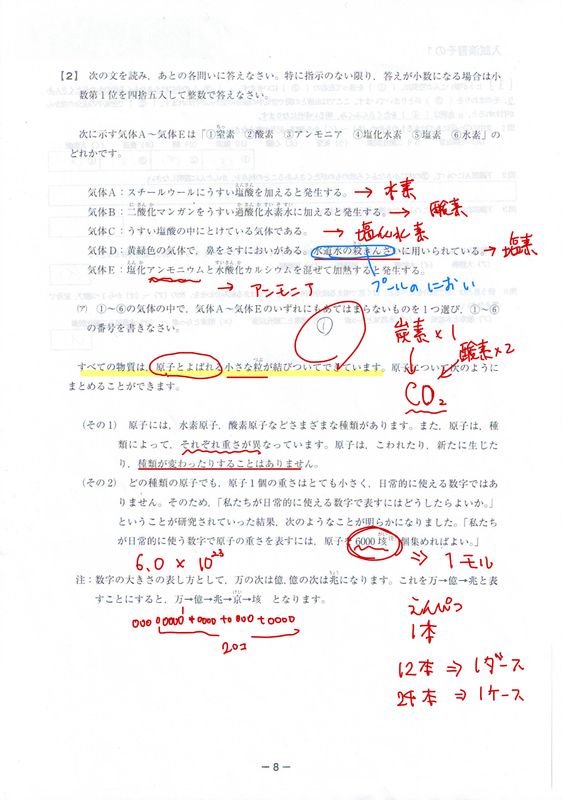 【2】 次の文を読み、あとの各問いに答えなさい。特に指示のない限り、答えが小数になる場合は小
数第1位を四捨五入して整数で答えなさい。
次に示す気体A〜気体Eは「①窒素 ②酸素 ③アンモニア ④塩化水素 ⑤塩素 ⑥水素」の
どれかです。
気体A：スチールウールにうすい塩酸を加えると発生する。 → 水素
気体B：二酸化マンガンをうすい過酸化水素水に加えると発生する。 → 酸素
気体C：うすい塩酸の中にとけている気体である。 → 塩化水素
気体D：黄緑色の気体で、鼻をさすにおいがある。水道水の殺きんざいに用いられている。 → 塩素
プールのにおい
気体E：塩化アンモニウムと水酸化カルシウムを混ぜて加熱すると発生する。
→ アンモニア
(ア) ①〜⑥の気体の中で、気体A〜気体Eのいずれにもあてはまらないものを1つ選び、①〜⑥
の番号を書きなさい。
①
炭素×1
酸素×2
CO₂
すべての物質は、原子とよばれる小さな粒が結びついてできています。原子について次のように
まとめることができます。
（その1） 原子には、水素原子、酸素原子などさまざまな種類があります。また、原子は、種
類によって、それぞれ重さが異なっています。原子は、こわれたり、新たに生じ
たり、種類が変わったりすることはありません。
（その2） どの種類の原子でも、原子1個の重さはとても小さく、日常的に使える数字ではあ
りません。そのため、「私たちが日常的に使える数字で表すにはどうしたらよいか。」
ということが研究されていった結果、次のようなことが明らかになりました。「私たち
が日常的に使う数字で原子の重さを表すには、原子を6000垓注個集めればよい。」
6.0 × 10²³
⇒ 1モル
注：数字の大きさの表し方として、万の次は億、億の次は兆になります。これを万→億→兆と表
すことにすると、万→億→兆→京→垓 となります。
000 0000 + 0000 + 0000 + 0000
20コ
えんぴつ
1本
12本 ⇒ 1ダース
24本 ⇒ 1ケース
― 8 ―